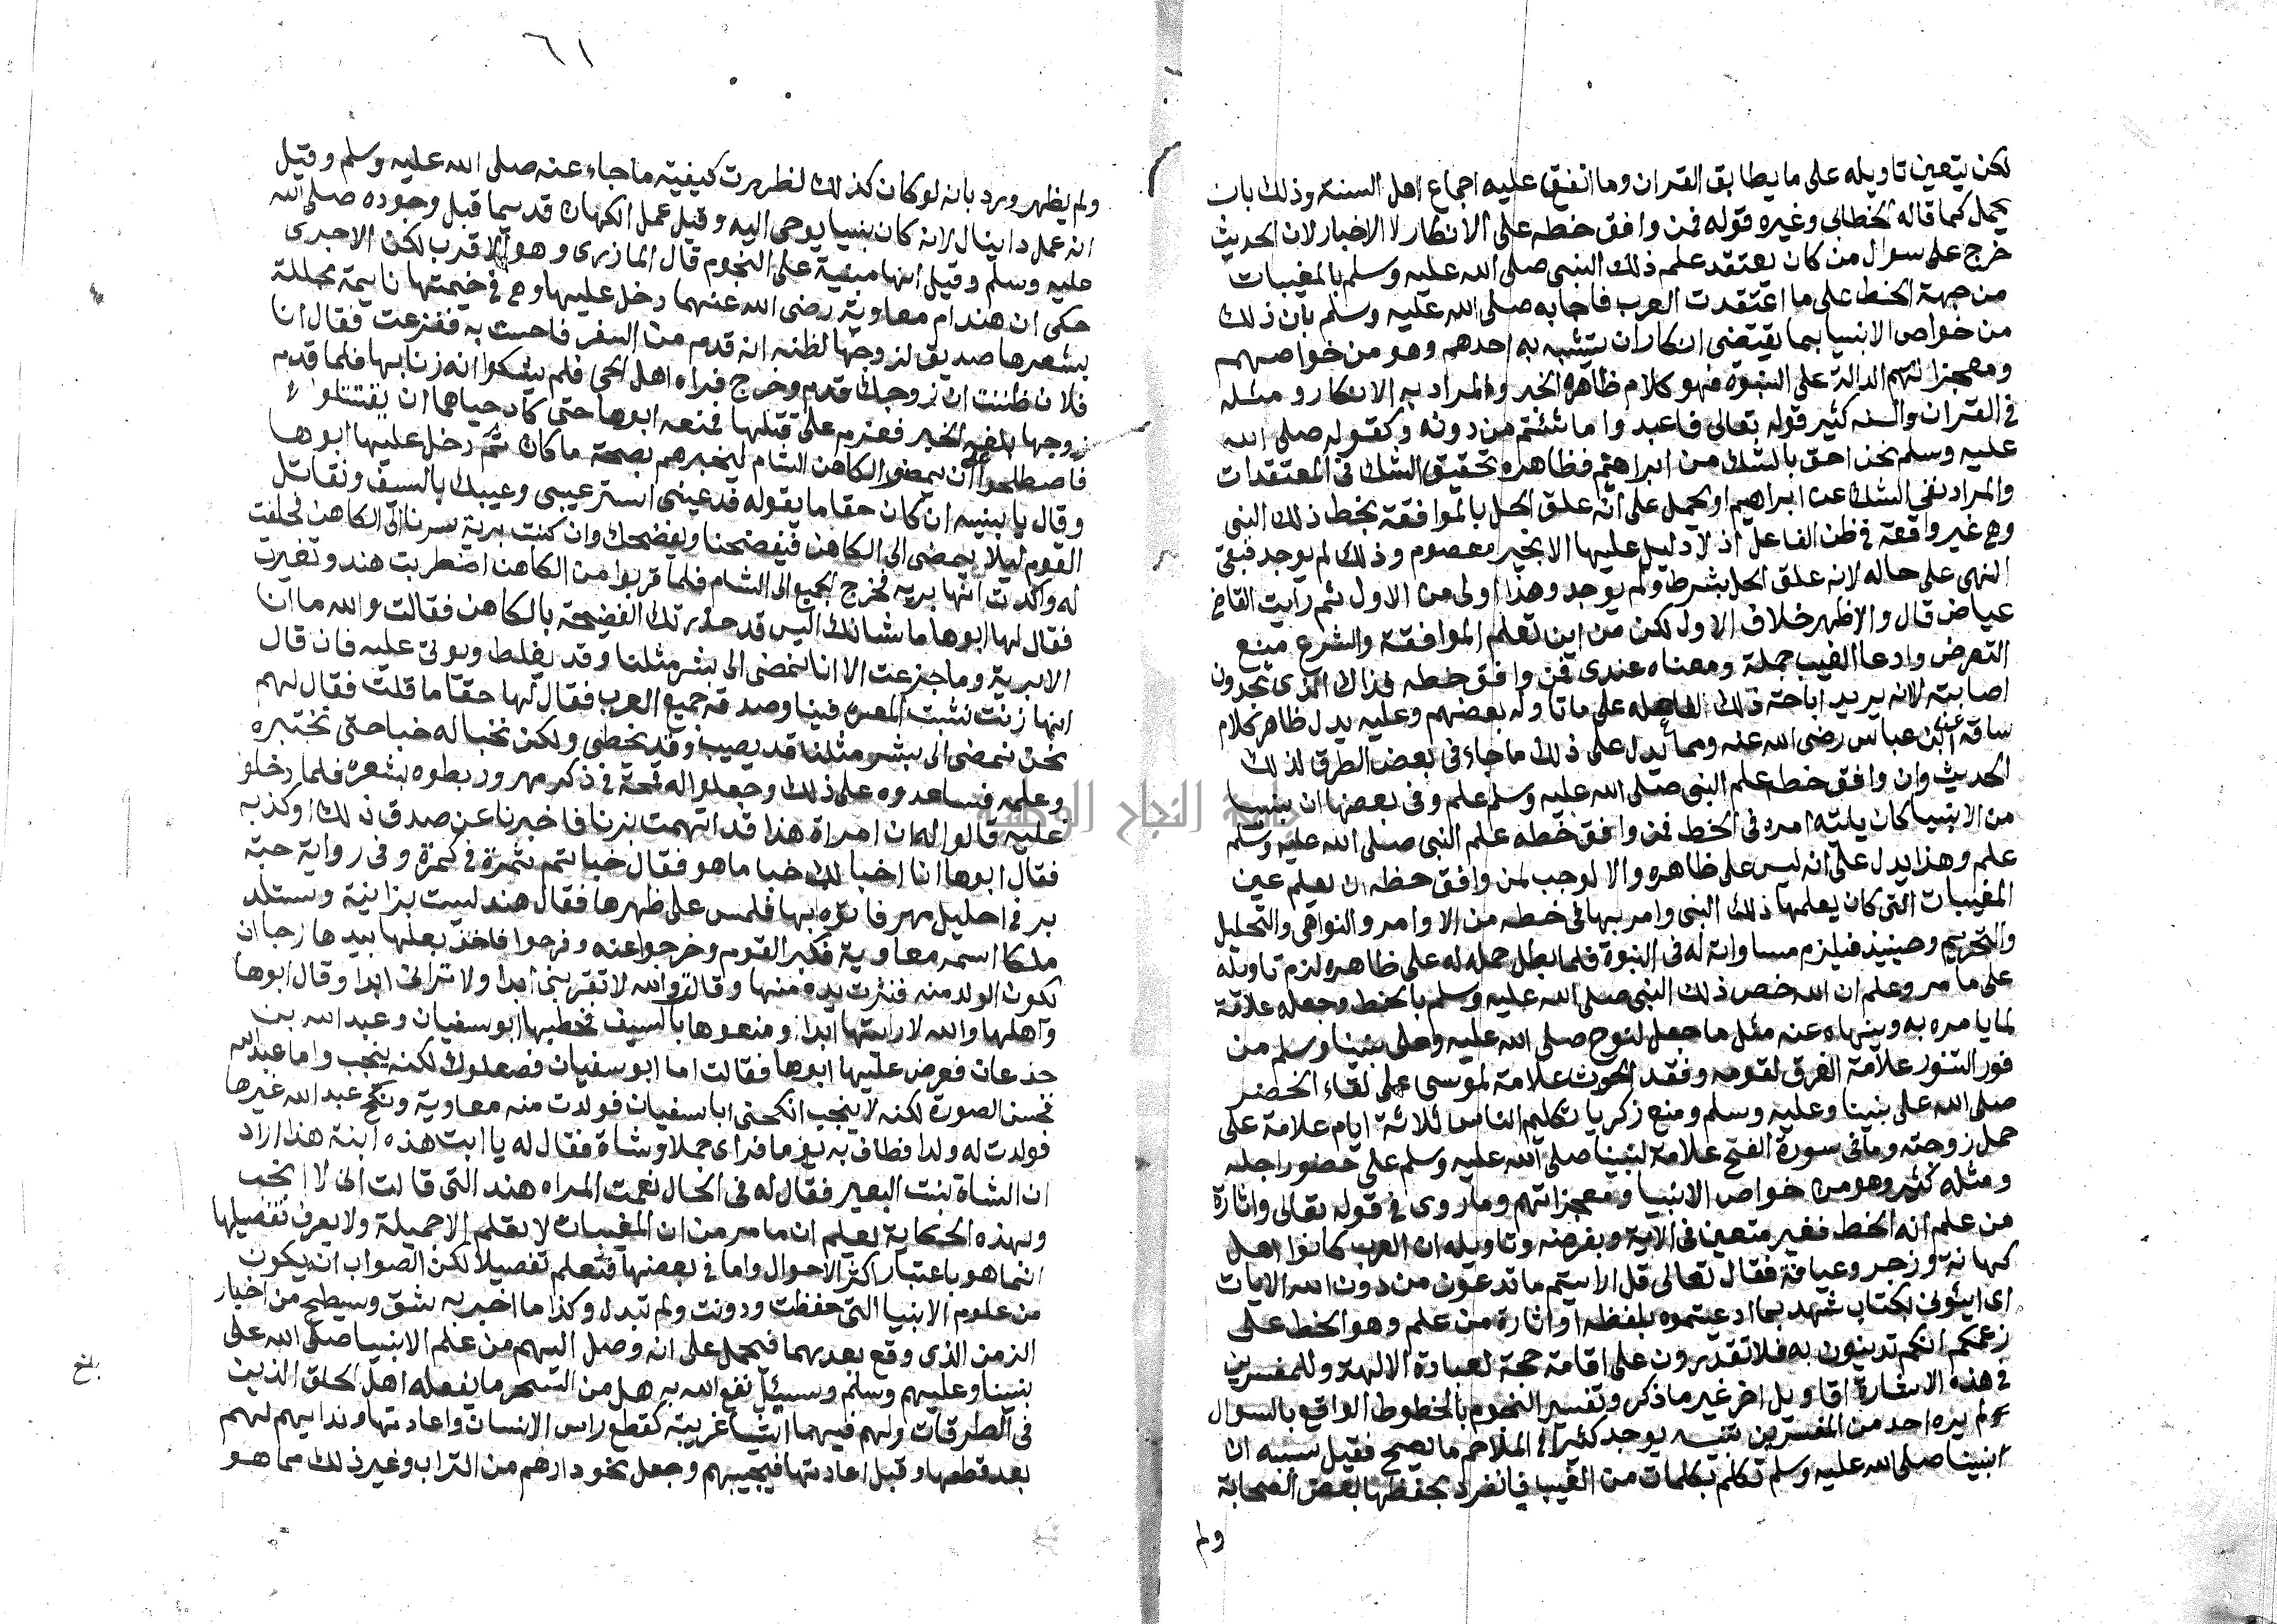 لكن يتعين تاويله على ما يطابق القران وما اتفق عليه اجماع اهل السنة وذلك بان
يحمل كما قاله الخطابي وغيره قوله فمن وافق خطه على الانكار لا الاخبار لان الحديث
خرج على سوال من كان يعتقد علم ذلك النبي صلى الله عليه وسلم بالمغيبات
من جهة الخط على ما اعتقدت العرب فاجابه صلى الله عليه وسلم بان ذلك
من خواص الانبيا بما يقتضى انكار ان يتشبه به احدهم وهو من خواصهم
ومعجزاتهم الدالة على النبوة فهو كلام ظاهره الخبر والمراد به الانكار ومثله
فى القران والسنه كثير قوله تعالى فاعبدوا ما شئتم من دونه وكقوله صلى الله
عليه وسلم نحن احق بالشك من ابراهيم فظاهره تحقيق الشك فى المعتقدات
والمراد نفي الشك عن ابراهيم او يحمل على انه علق الحل بالموافقة بخط ذلك النبي
وهي غير واقعة في ظن الفاعل اذ لا دليل عليها الا بخبر معصوم وذلك لم يوجد فبقي
النهى على حاله لانه علق الحل بشرط ولم يوجد وهذا اولى من الاول ثم رايت القاضي
عياض قال والاظهر خلاف الاول لكن من اين تعلم الموافقة والشرع منع
التعرض وادعا الغيب جملة ومعناه عندى فمن وافق خطه فذاك الذى تجدون
اصابته لا انه يريد اباحة ذلك لفاعله على ما تاوله بعضهم وعليه يدل ظاهر كلام
ساقه عن ابن عباس رضى الله عنه ومما يدل على ذلك ما جاء فى بعض الطرق لذلك
الحديث وان وافق خطه علم النبى صلى الله عليه وسلم علم وفى بعضها ان نبيا
من الانبيا كان ياتيه امره فى الخط فمن وافق خطه علم النبى صلى الله عليه وسلم
علم وهذا يدل على انه ليس على ظاهره والا لوجب لمن وافق خطه ان يعلم عين
المغيبات التى كان يعلمها ذلك النبى وامر بها فى خطه من الاوامر والنواهى والتحليل
والتحريم وحينيذ فيلزم مساواته له فى النبوة فلما بطل حمله له على ظاهره لزم تاويله
على ما مر وعلم ان الله خص ذلك النبى صلى الله عليه وسلم بالخط وجعله علامة
لما يامره به وينهاه عنه مثل ما جعل لنوح صلى الله عليه وعلى نبينا وسلم من
فور التنور علامة الغرق لقومه وفقد الحوت علامة لموسى على لقاء الخضر
صلى الله على نبينا وعليه وسلم ومنع زكريا تكليم الناس ثلاثة ايام علامة على
حمل زوجته وما فى سورة الفتح علامة لنبينا صلى الله عليه وسلم على حضور اجله
ومثله كثير وهو من خواص الانبيا ومعجزاتهم وما روى فى قوله تعالى واثارة
من علم انه الخط فغير متعين فى الاية وبفرضه وتاويله ان العرب كانوا اهل
كهانة وزجر وعيافة فقال تعالى قل ارايتم ما تدعون من دون الله الايات
اى ايتونى بكتاب شهد بما ادعيتموه بلفظه او اثارة من علم وهو الخط على
زعمكم انكم تدينون به فلا تقدرون على اقامة حجة لعبادة الالهة وللمفسرين
فى هذه الاشارة اقاويل اخر غير ما ذكر وتفسير النجوم بالخطوط الواقع بالسوال
لم يره احد من المفسرين تنبيه يوجد كثيرا فى الملاحم ما يصح فقيل سببه ان
نبينا صلى الله عليه وسلم تكلم بكلمات من الغيب فانفرد بحفظها بعض الصحابة
ولم
٦١
ولم يظهر ورد بانه لو كان كذلك لظهرت كيفية ما جاء عنه صلى الله عليه وسلم وقيل
انه عمل دانيال لانه كان نبيا يوحى اليه وقيل عمل الكهان قديما قبل وجوده صلى الله
عليه وسلم وقيل انها مبنية على النجوم قال المازرى وهو الاقرب لكن الاحرى
حكى ان هند ام معاوية رضى الله عنهما دخل عليها وهي في خيمتها نايمة مجللة
بشعرها صديق لزوجها لظنه انه قدم من السفر فاحست به ففزعت فقال انا
فلان ظننت ان زوجك قدم وخرج فراه اهل الحى فلم يشكوا انه زنا بها فلما قدم
زوجها بلغه الخبر فعزم على قتلها فمنعه ابوها حتى كاد حياهما ان يقتتلوا
فاصطلحوا على ان يمضوا لكاهن الشام ليخبرهم بصحة ما كان ثم دخل عليها ابوها
وقال يا بنيه ان كان حقا ما يقوله فدعينى استر عيبى وعيبك بالسيف ونقاتل
القوم ليلا يمضى الى الكاهن فيفضحنا ويفضحك وان كنت برية سرنا الى الكاهن فحلفت
له واكدت انها برية فخرج الجميع الى الشام فلما قربوا من الكاهن اضطربت هند وتغيرت
فقال لها ابوها ما شانك اليس قد حذرتك الفضيحة بالكاهن فقالت والله ما انا
الا برية وما جزعت الا انا نمضى الى بشر مثلنا وقد يغلط ويوتى عليه فان قال
انها زنت تثبت المعرة فينا وصدقة جميع العرب فقال لها حقا ما قلت فقال لهم
نحن نمضى الى بشر مثلنا قد يصيب وقد يخطى ولكن نخبا له خبا حتى نختبره
وعلمه فساعدوه على ذلك وجعلوا له قمحة فى ذكر مهر وربطوه بشعره فلما دخلوا
عليه قالوا له ان امراة هذا قد اتهمت بزنا فاخبرنا عن صدق ذلك او كذبه
فقال ابوها انا اخبا لك خبا ما هو فقال خباتم ثمرة فى كمرة وفى رواية حبة
بر فى احليل مهر فاتوه بها فلمس على ظهرها فقال هند ليست بزانية وستلد
ملكا اسمه معاوية فكبر القوم وخرجوا عنه وفرحوا فاخذ بعلها بيدها رجا ان
يكون الولد منه فنثرت يده منها وقالت والله لا تقربنى ابدا ولا ترانى ابدا وقال ابوها
واهلها والله لا رايتها ابدا ومنعوها بالسيف فخطبها ابو سفيان وعبد الله بن
جذعان فعرض عليها ابوها فقالت اما ابو سفيان فصعلوك لكنه ينجب واما عبد الله
فحسن الصورة لكنه لا ينجب انكحنى ابا سفيان فولدت منه معاوية ونكح عبد الله غيرها
فولدت له ولدا فطاف به يوما فراى جملا وشاة فقال له يا ابت هذه ابنة هذا اراد
ان الشاة بنت البعير فقال له فى الحال نعمت المراه هند التى قالت انى لا انجب
وبهذه الحكاية يعلم ان ما مر من ان المغيبات لا تعلم الا جميلة ولا يعرف تفصيلها
انما هو باعتبار اكثر الاحوال واما فى بعضها فتعلم تفصيلا لكن الصواب ان يكون
من علوم الانبيا التى حفظت ودونت ولم تبدل وكذا ما اخبر به شق وسطيح من اخبار
الزمن الذى وقع بعدهما فيحمل على انه وصل اليهم من علم الانبيا صلى الله على
نبينا وعليهم وسلم وسيئل نفع الله به هل من السحر ما يفعله اهل الحلق الذين
فى الطرقات ولهم فيهما اشيا غريبة كقطع راس الانسان واعادتها وندايهم لهم
بعد قطعها وقبل اعادتها فيجيبهم وجعل نحو دارهم من التراب وغير ذلك مما هو
بلغ
جامعة النجاح الوطنية